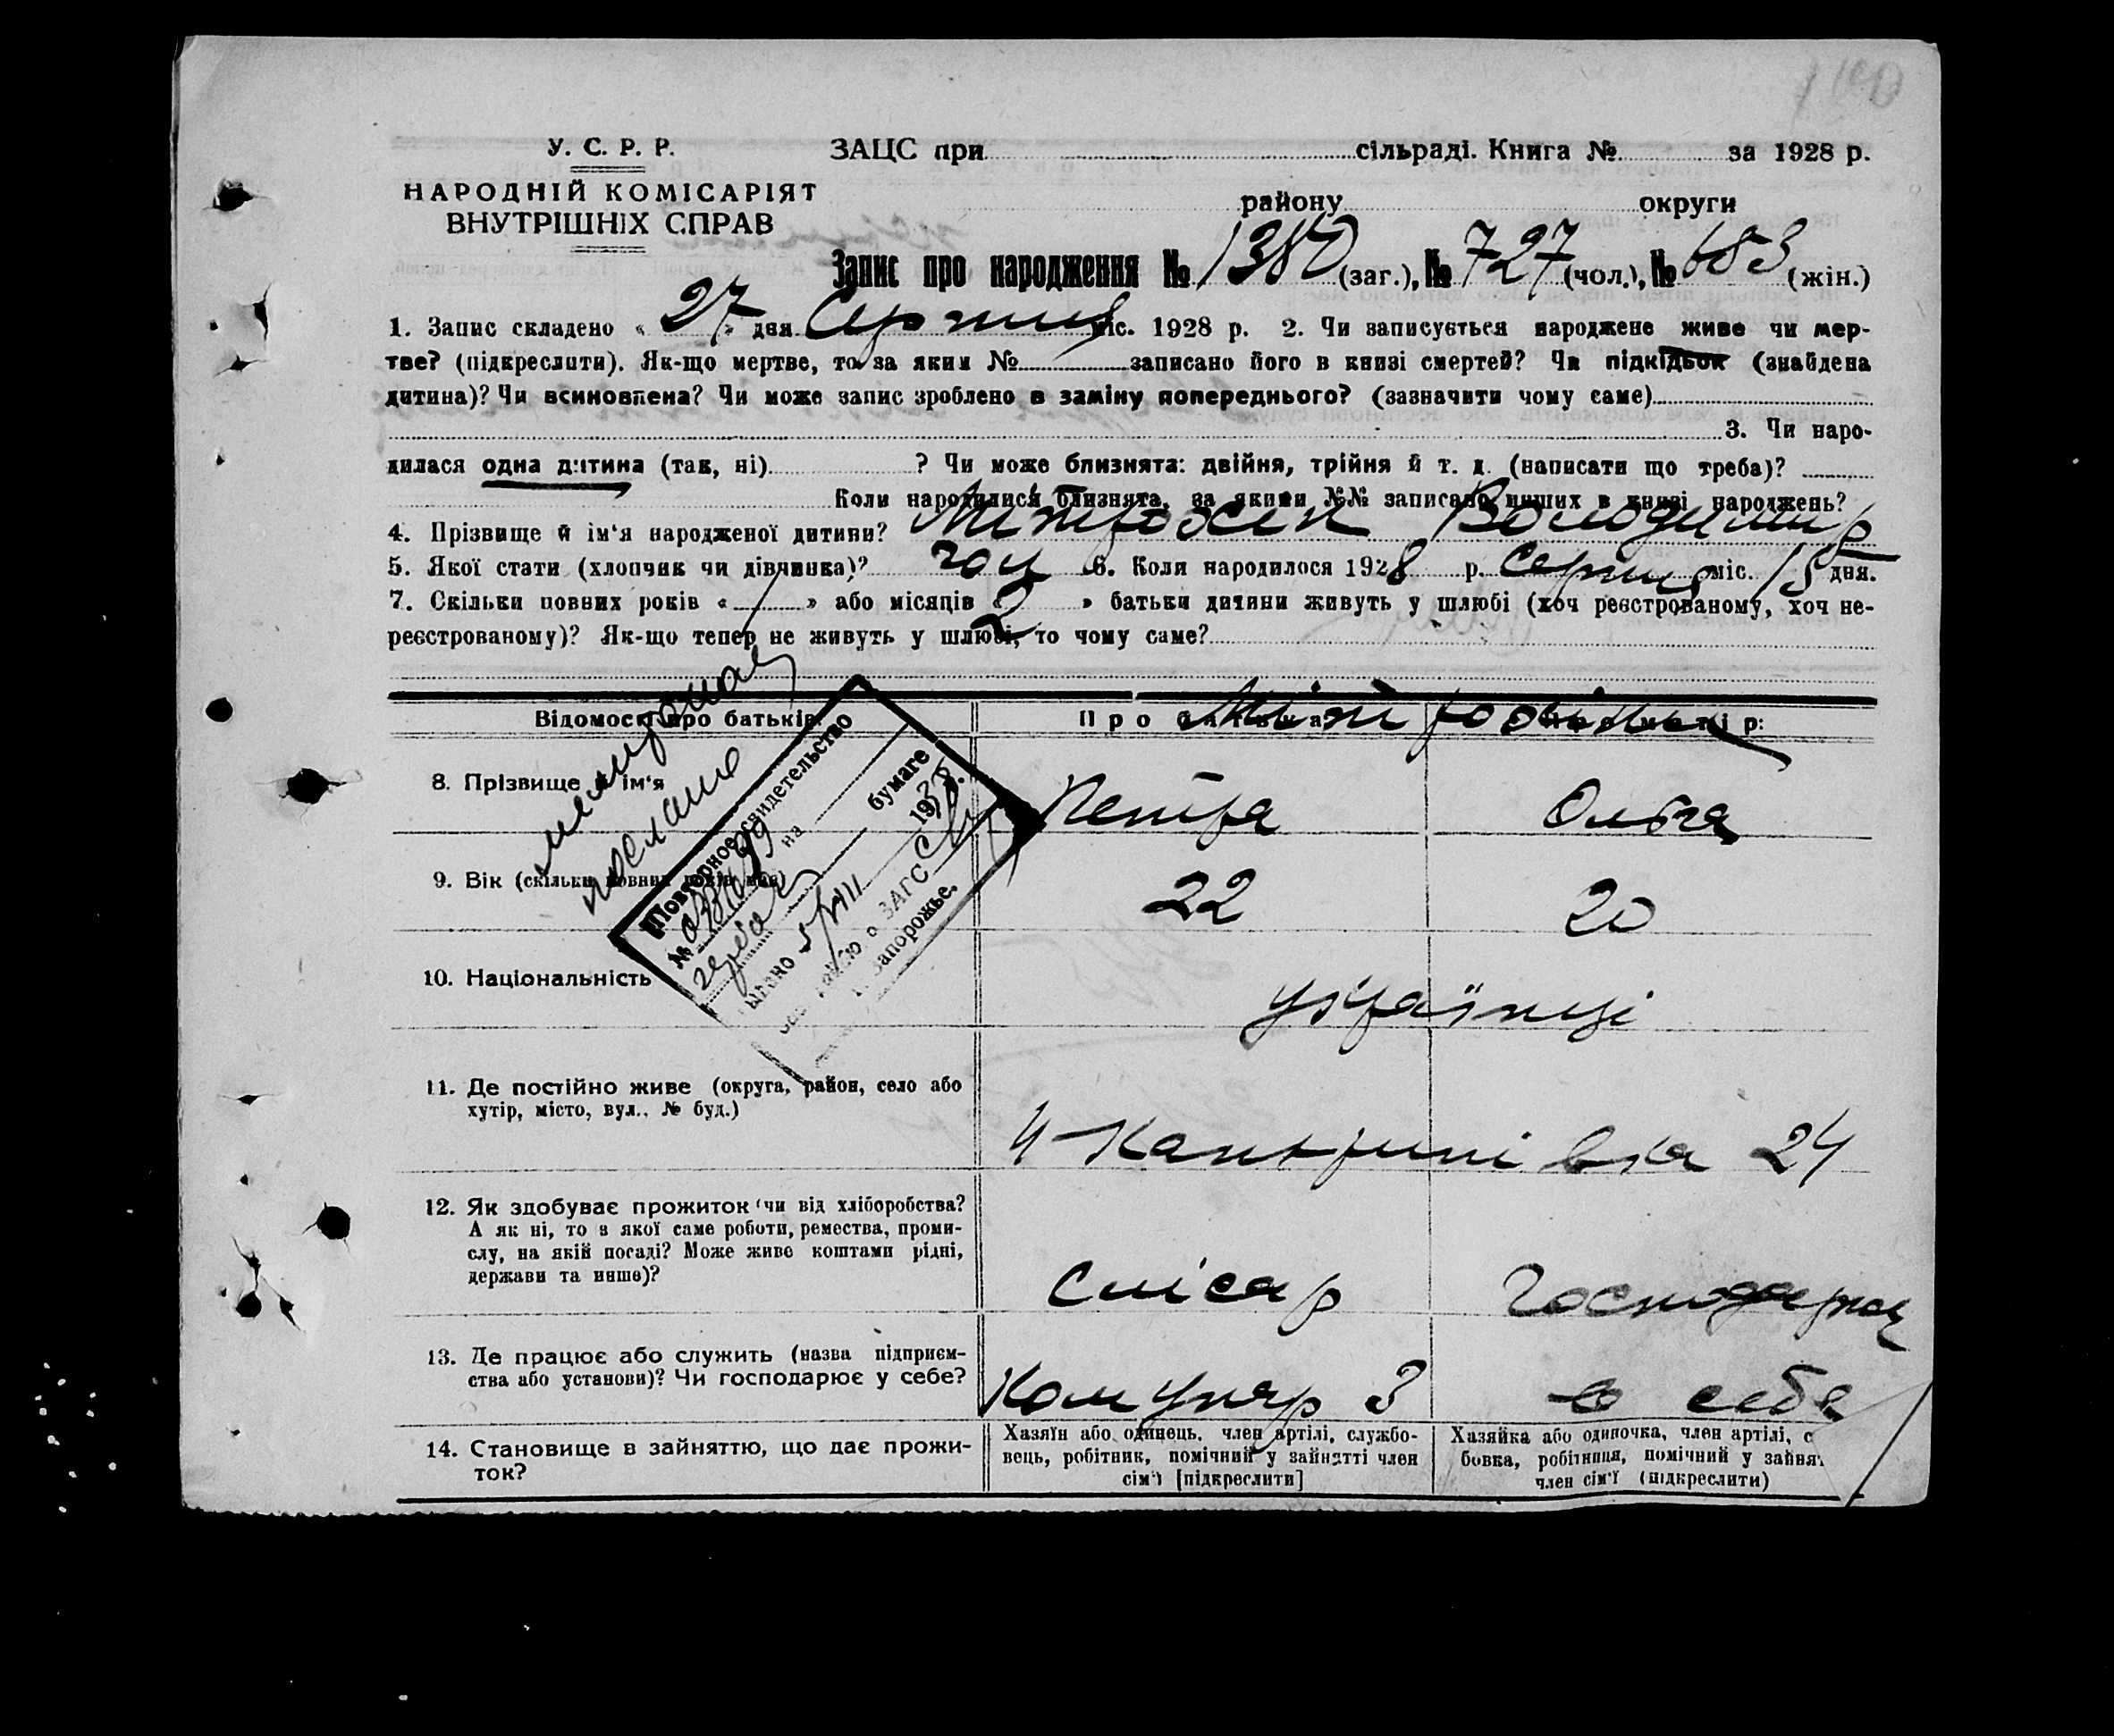 У. С. Р. Р.
НАРОДНІЙ КОМІСАРІЯТ
ВНУТРІШНІХ СПРАВ
ЗАЦС при сільраді. Книга № за 1928 р.
району округи
Запис про народження № 1380 (заг.), № 727 (чол.), № 653 (жін.)
1. Запис складено « 27 » дня Серпня міс. 1928 р. 2. Чи записується народжене живе чи мер-
тве? (підкреслити). Як-що мертве, то за яким № записано його в книзі смертей? Чи підкідьок (знайдена
дитина)? Чи всиновлена? Чи може запис зроблено в заміну попереднього? (зазначити чому саме)
3. Чи наро-
дилася одна дитина (так, ні) ? Чи може близнята: двійня, трійня й т. д. (написати що треба)?
Коли народилися близнята, за якими №№ записано инших в книзі народжень?
4. Прізвище й ім'я народженої дитини? Володимир
5. Якої стати (хлопчик чи дівчинка)? чол 6. Коли народилося 1928 р. Серпня міс. 15 дня.
7. Скільки повних років « » або місяців « 2 » батьки дитини живуть у шлюбі (хоч реєстрованому, хоч не-
реєстрованому)? Як-що тепер не живуть у шлюбі, то чому саме?
Відомості про батьків: Про батька: Про матір:
8. Прізвище й ім'я Петро Ольга
9. Вік (скільки повних років має) 22 20
10. Національність українці
11. Де постійно живе (округа, район, село або
хутір, місто, вул., № буд.)
24
12. Як здобуває прожиток (чи від хліборобства?
А як ні, то з якої саме роботи, ремества, проми-
слу, на якій посаді? Може живе коштами рідні,
держави та инше)?
Слісар Господарка
13. Де працює або служить (назва підприєм-
ства або установи)? Чи господарює у себе?
Комунар 3 в себе
14. Становище в зайняттю, що дає прожи-
ток?
Хазяїн або одинець, член артілі, службо-
вець, робітник, помічний у зайнятті член
сім'ї [підкреслити]
Хазяйка або одиночка, член артілі, с
бовка, робітниця, помічний у зайня
член сім'ї (підкреслити)
послано
Повторное свидетельство
№ на бумаге
VIII 193
ЗАГС
Запорожье.